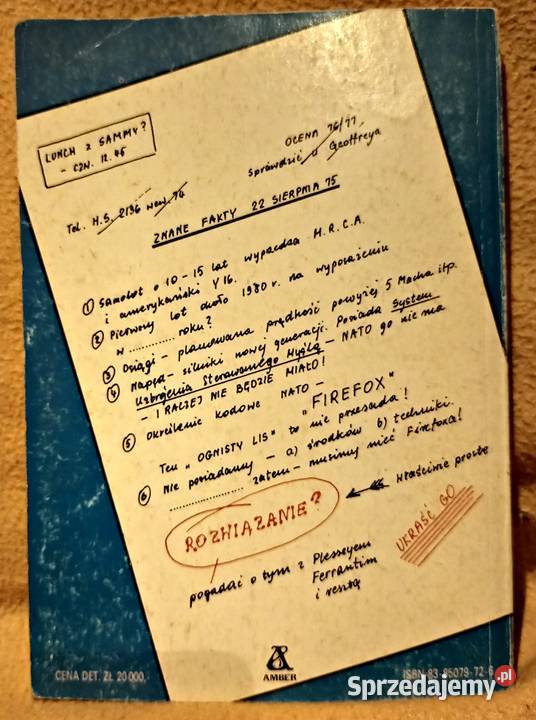 LUNCH z SAMMY?
- CZW. 12.45
OCENA 76/77
sprawdzić u Geoffreya
Tel. H.S. 2136 wew. 74
ZNANE FAKTY 22 SIERPNIA 75
① Samolot o 10-15 lat wyprzedza M.R.C.A.
i amerykański Y 16.
② Pierwszy lot około 1980 r. na wyposażeniu
w ............ roku?
③ Osiągi - planowana prędkość powyżej 5 Macha itp.
④ Napęd - silniki nowej generacji. Posiada System
Uzbrojenia Sterowanego Myślą - NATO go nie ma
- I RACZEJ NIE BĘDZIE MIAŁO!
⑤ Określenie kodowe NATO -
"FIREFOX"
Ten "OGNISTY LIS" to nie przesada!
⑥ Nie posiadamy - a) środków b) techniki.
............ zatem - musimy mieć Firefoxa!
ROZWIĄZANIE?
właściwie proste
UKRAŚĆ GO
pogadać o tym z Plesseyem
Ferrantim
i resztą
AMBER
CENA DET. ZŁ 20 000,-
ISBN-83-85079-72-6
Sprzedajemy.pl